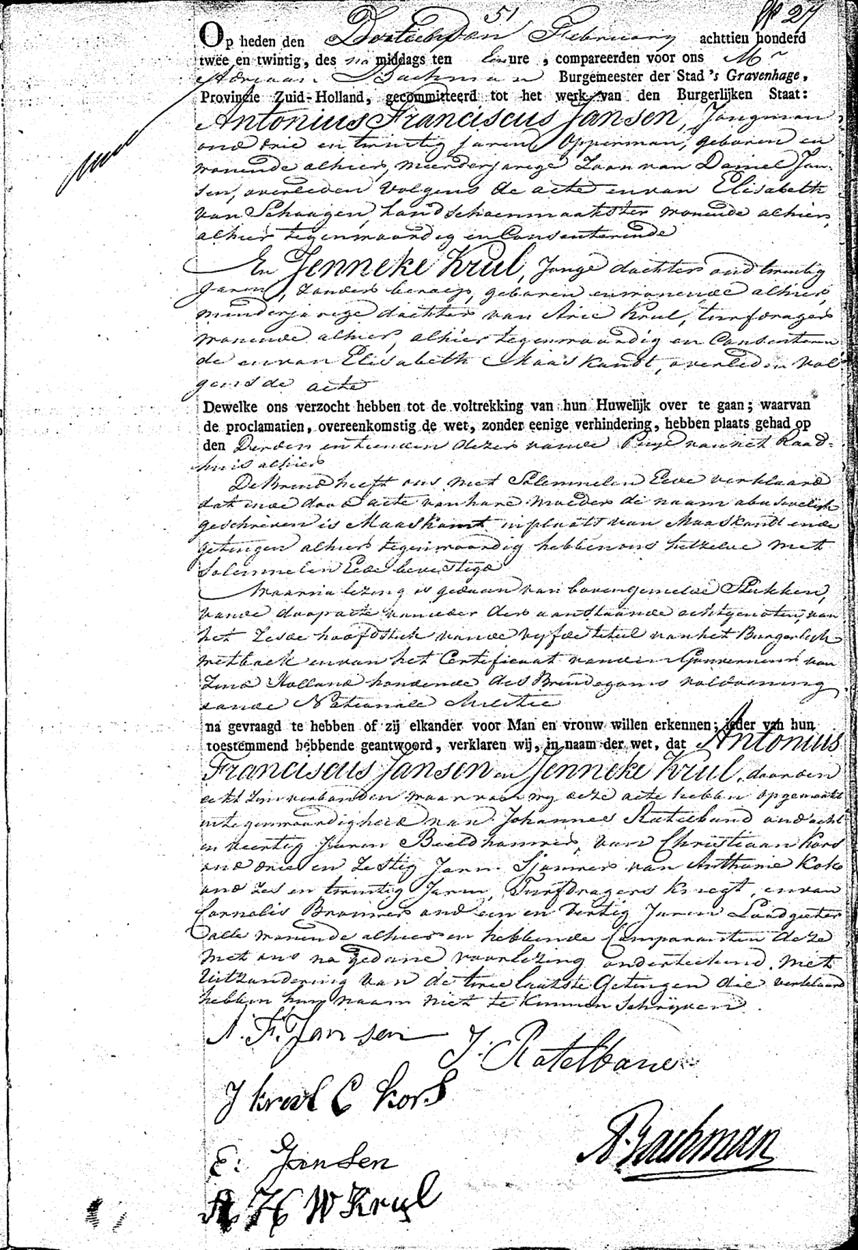 51
27
Op heden den Dertienden February achttien honderd
twee en twintig, des na middags ten Eenure, compareerden voor ons Mr
Adriaan Backman Burgemeester der Stad 's Gravenhage,
Provincie Zuid-Holland, gecommitteerd tot het werk van den Burgerlijken Staat:
Antonius Franciscus Jansen, Jongman
oud drie en twintig jaren, Opperman, geboren en
wonende alhier, meerderjarige Zoon van Daniel Jan-
sen, overleden volgens de acte en van Elisabeth
van Schaagen, handschoenmaakster wonende alhier,
alhier tegenwoordig en Consenterende
En Jenneke Krul, Jonge dochter oud twintig
Jaren, zonder beroep, geboren en wonende alhier,
minderjarige dochter van Arie Krul, turfdrager
wonende alhier, alhier tegenwoordig en Consenteren
de en van Elisabeth Maaskandt, overleden vol
gens de acte
Dewelke ons verzocht hebben tot de voltrekking van hun Huwelijk over te gaan; waarvan
de proclamatien, overeenkomstig de wet, zonder eenige verhindering, hebben plaats gehad op
den Derden en tienden dezer van de Puye van het Raad-
huis alhier
De Bruid heeft ons met Solemnelen Eede verklaard
dat in de dood acte van hare moeder de naam abusivelijk
geschreven is Maaskant in plaats van Maaskandt en de
getuigen alhier tegenwoordig hebben ons hetzelve met
Solemnelen Eede bevestigd
Waarna lezing is gedaan van bovengemelde Stukken,
van de doopacte van ieder der aanstaande echtgenoten, van
het Zesde hoofdstuk van de vyfde titel van het Burgerlijk
wetboek en van het Certificaat van den Gouverneur van
Zuid Holland houdende des Bruidegoms voldoening
aan de Nationale Militie
na gevraagd te hebben of zij elkander voor Man en vrouw willen erkennen; ieder van hun
toestemmend hebbende geantwoord, verklaren wij, in naam der wet, dat Antonius
Franciscus Jansen en Jenneke Krul, door den
echt zyn verbonden waarvan wy deze acte hebben opgemaakt
in tegenwoordigheid van Johannes Ratelband oud acht
en veertig Jaren Beeldhouwer, van Christiaan Kors
oud drie en Zestig Jaren Sjouwer van Anthonie Kok
oud Zes en twintig Jaren, Turfdragers knegt, en van
Cornelis Brouwer oud een en dertig Jaren Loodgieter
alle wonende alhier en hebbende Comparanten deze
met ons na gedane voorlezing onderteekend. met
Uitzondering van de twee laatste Getuigen die verklaard
hebben hun naam niet te kunnen Schrijven
A. F. Jansen
J. Ratelband
J krul C kors
E: Jansen
A Backman
A H W Krul